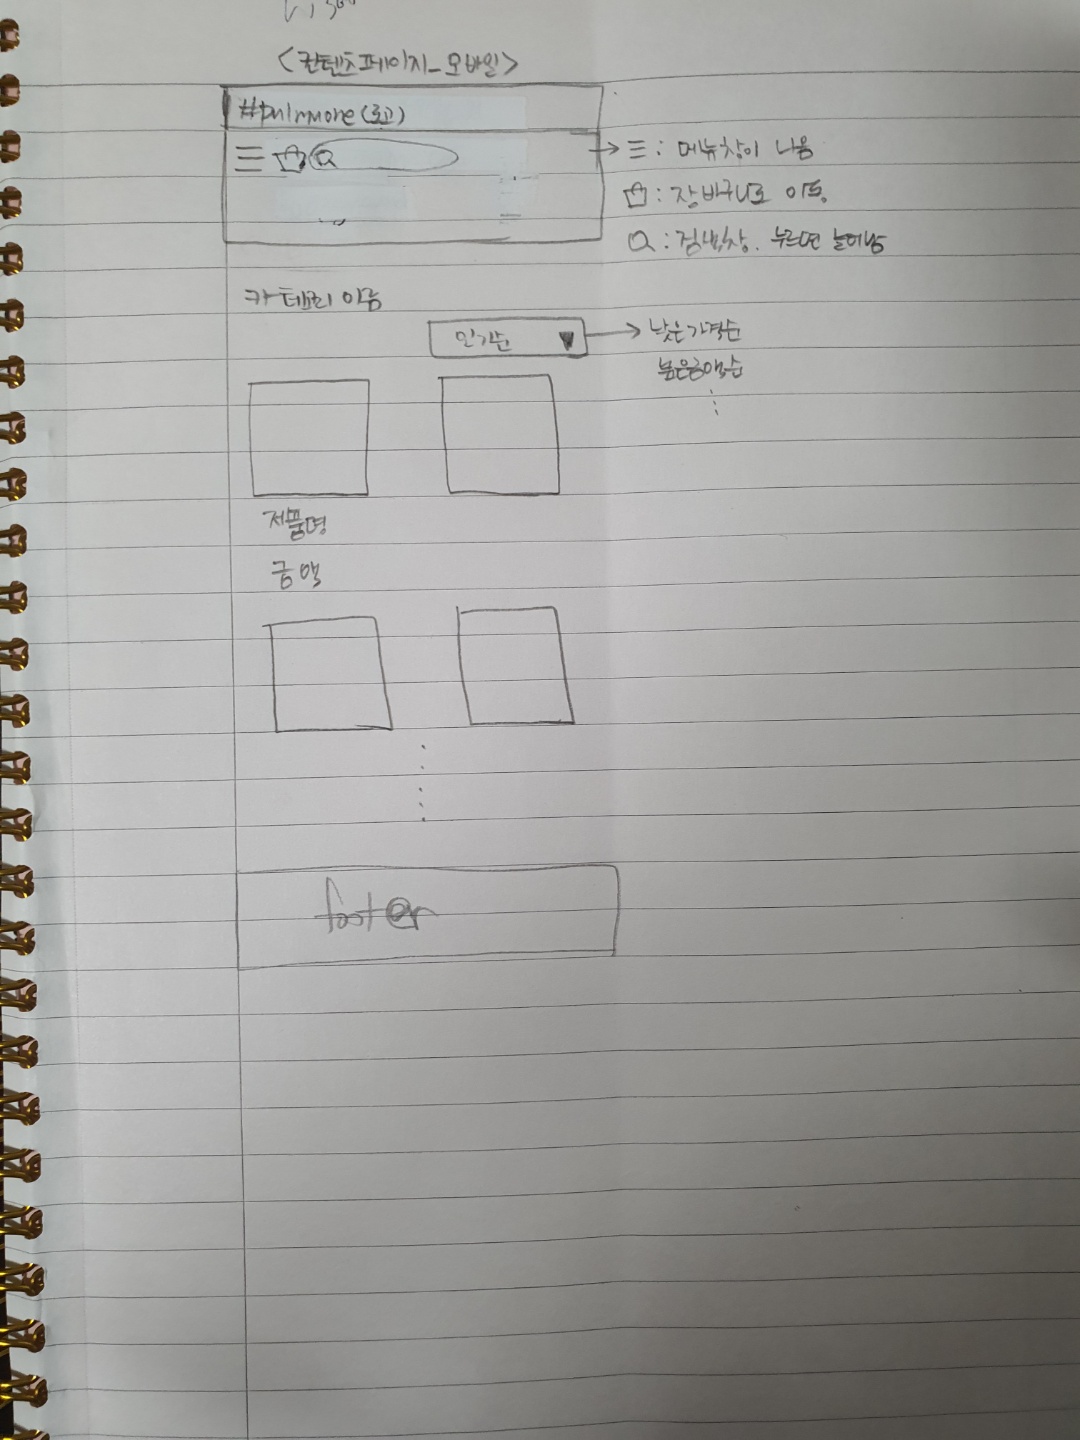 <컨텐츠페이지_모바일>
(로고)
三 : 메뉴창이 나옴
: 장바구니로 이동
: 검색창. 누르면 늘어남
카테고리 이름
인기순 ▼
낮은가격순
높은금액순
제품명
금액
footer